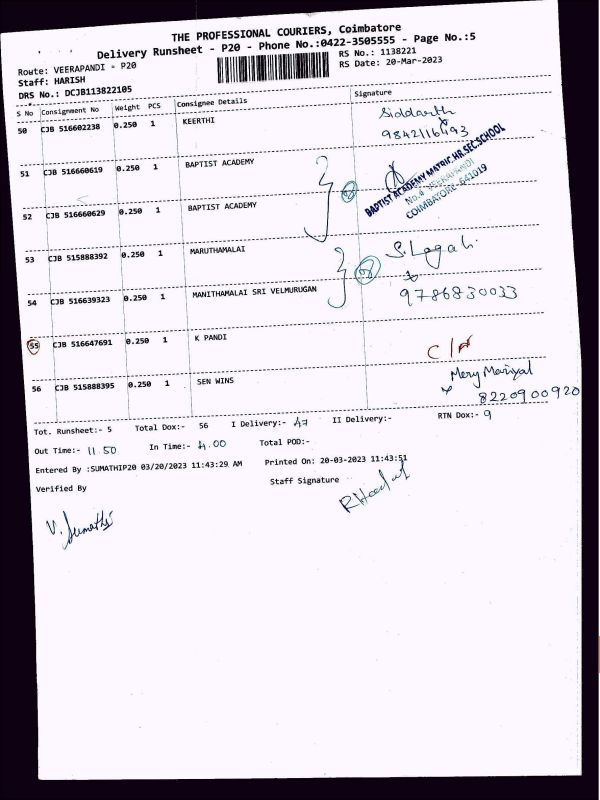 THE PROFESSIONAL COURIERS, Coimbatore
Delivery Runsheet - P20 - Phone No.:0422-3505555 - Page No.:5
Route: VEERAPANDI - P20
RS No.: 1138221
Staff: HARISH
RS Date: 20-Mar-2023
DRS No.: DCJB113822105
S No Consignment No Weight PCS Consignee Details Signature
50 CJB 516602238 0.250 1 KEERTHI Siddarth
9842116493
51 CJB 516660619 0.250 1 BAPTIST ACADEMY
BAPTIST ACADEMY MATRIC.HR.SEC.SCHOOL
No.4 VEERAPANDI
COIMBATORE-641019
52 CJB 516660629 0.250 1 BAPTIST ACADEMY
53 CJB 515888392 0.250 1 MARUTHAMALAI
54 CJB 516639323 0.250 1 MANITHAMALAI SRI VELMURUGAN
9786830033
55 CJB 516647691 0.250 1 K PANDI
56 CJB 515888395 0.250 1 SEN WINS
8220900920
Tot. Runsheet:- 5 Total Dox:- 56 I Delivery:- 47 II Delivery:- RTN Dox:- 9
Out Time:- 11.50 In Time:- 4.00 Total POD:-
Entered By :SUMATHIP20 03/20/2023 11:43:29 AM Printed On: 20-03-2023 11:43:51
Verified By Staff Signature
V. Sumathi